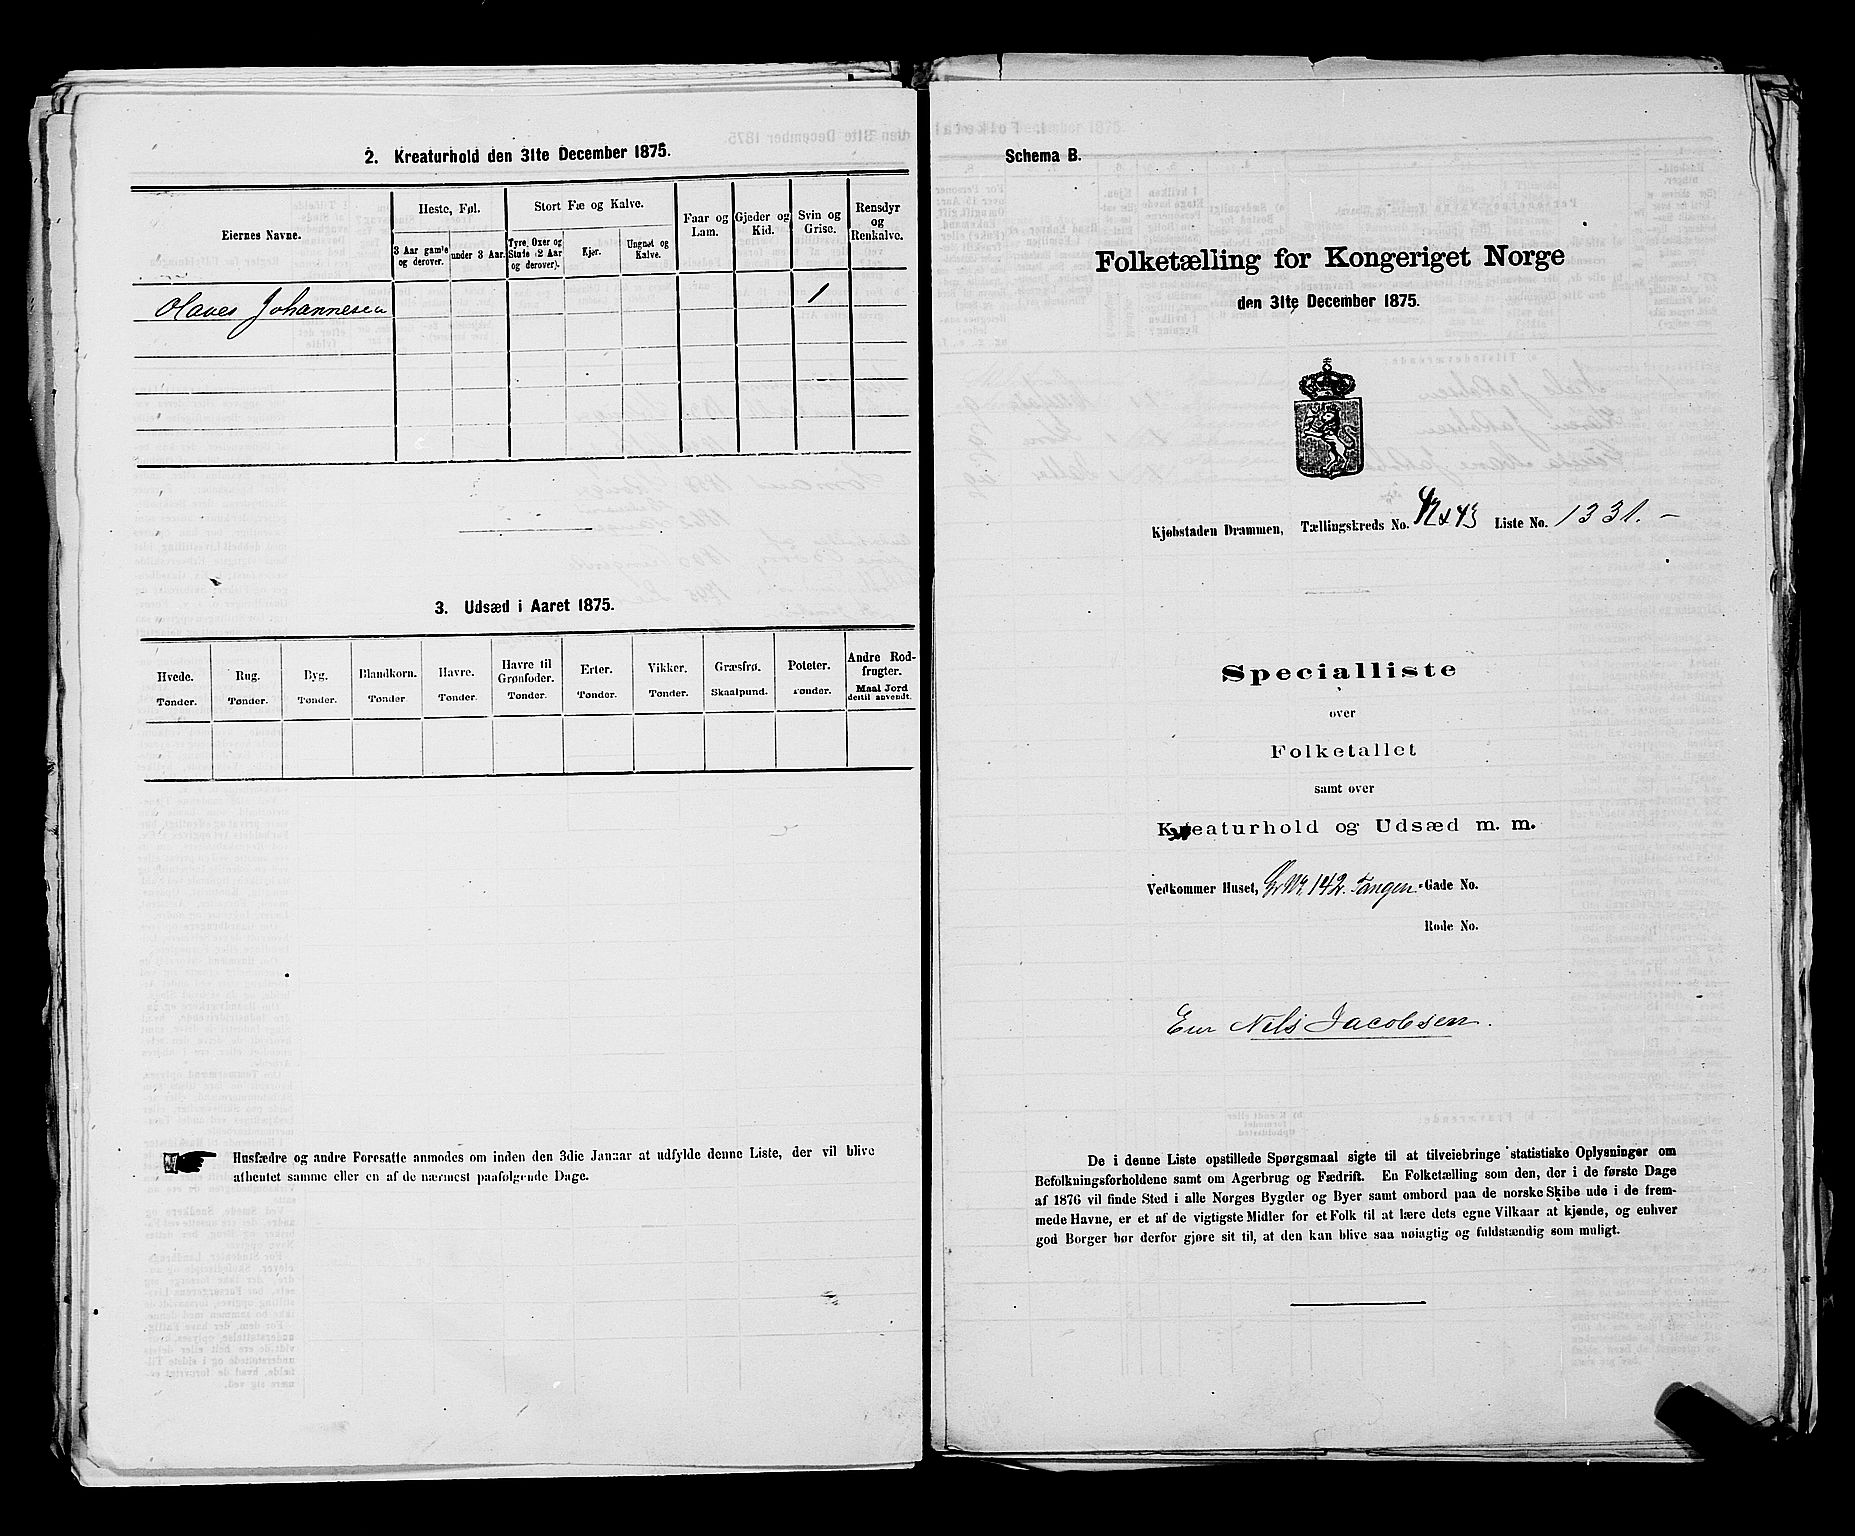 2. Kreaturhold den 31te December 1875.
Eiernes Navne.
Heste, Føl.
Stort Fæ og Kalve.
Faar og
Lam.
Gjeder og
Kid.
Svin og
Grise.
Rensdyr
og
Renkalve.
3 Aar gamle
og derover.
under 3 Aar.
Tyre, Oxer og
Stude (2 Aar
og derover).
Kjør.
Ungnøt og
Kalve.
Olaves Johannesen 1
3. Udsæd i Aaret 1875.
Hvede.
Tønder.
Rug.
Tønder.
Byg.
Tønder.
Blandkorn.
Tønder
Havre.
Tønder.
Havre til
Grønfoder.
Tønder.
Erter.
Tønder.
Vikker.
Tønder.
Græsfrø.
Skaalpund.
Poteter.
Tønder.
Andre Rod-
frugter.
Maal Jord
dertil anvendt.
Husfædre og andre Foresatte anmodes om inden den 3die Januar at udfylde denne Liste, der vil blive
afhentet samme eller en af de nærmest paafølgende Dage.
Schema B.
Folketælling for Kongeriget Norge
den 31te December 1875.
Kjøbstaden Drammen, Tællingskreds No. Liste No. 1331.-
Specialliste
over
Folketallet
samt over
Kreaturhold og Udsæd m. m.
Vedkommer Huset, Gr No. 142. Tangen-Gade No.
Rode No.
Eier Nils Jacobsen.
De i denne Liste opstillede Spørgsmaal sigte til at tilveiebringe statistiske Oplysninger om
Befolkningsforholdene samt om Agerbrug og Fædrift. En Folketælling som den, der i de første Dage
af 1876 vil finde Sted i alle Norges Bygder og Byer samt ombord paa de norske Skibe ude i de frem-
mede Havne, er et af de vigtigste Midler for et Folk til at lære dets egne Vilkaar at kjende, og enhver
god Borger bør derfor gjøre sit til, at den kan blive saa nøiagtig og fuldstændig som muligt.